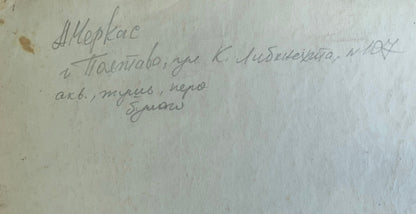 А Черкас
г Полтава, ул К. Либкнехта, №107
акв., тушь, перо
бумаг